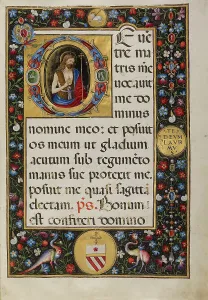 D E uē
tre ma
tris me
e uocauit
me do
minus
nomine meo: et posuit
os meum ut gladium
acutum sub tegumēto
manus sue protexit me.
posuit me quasi sagittā
electam. ps. Bonum
est confiteri domino